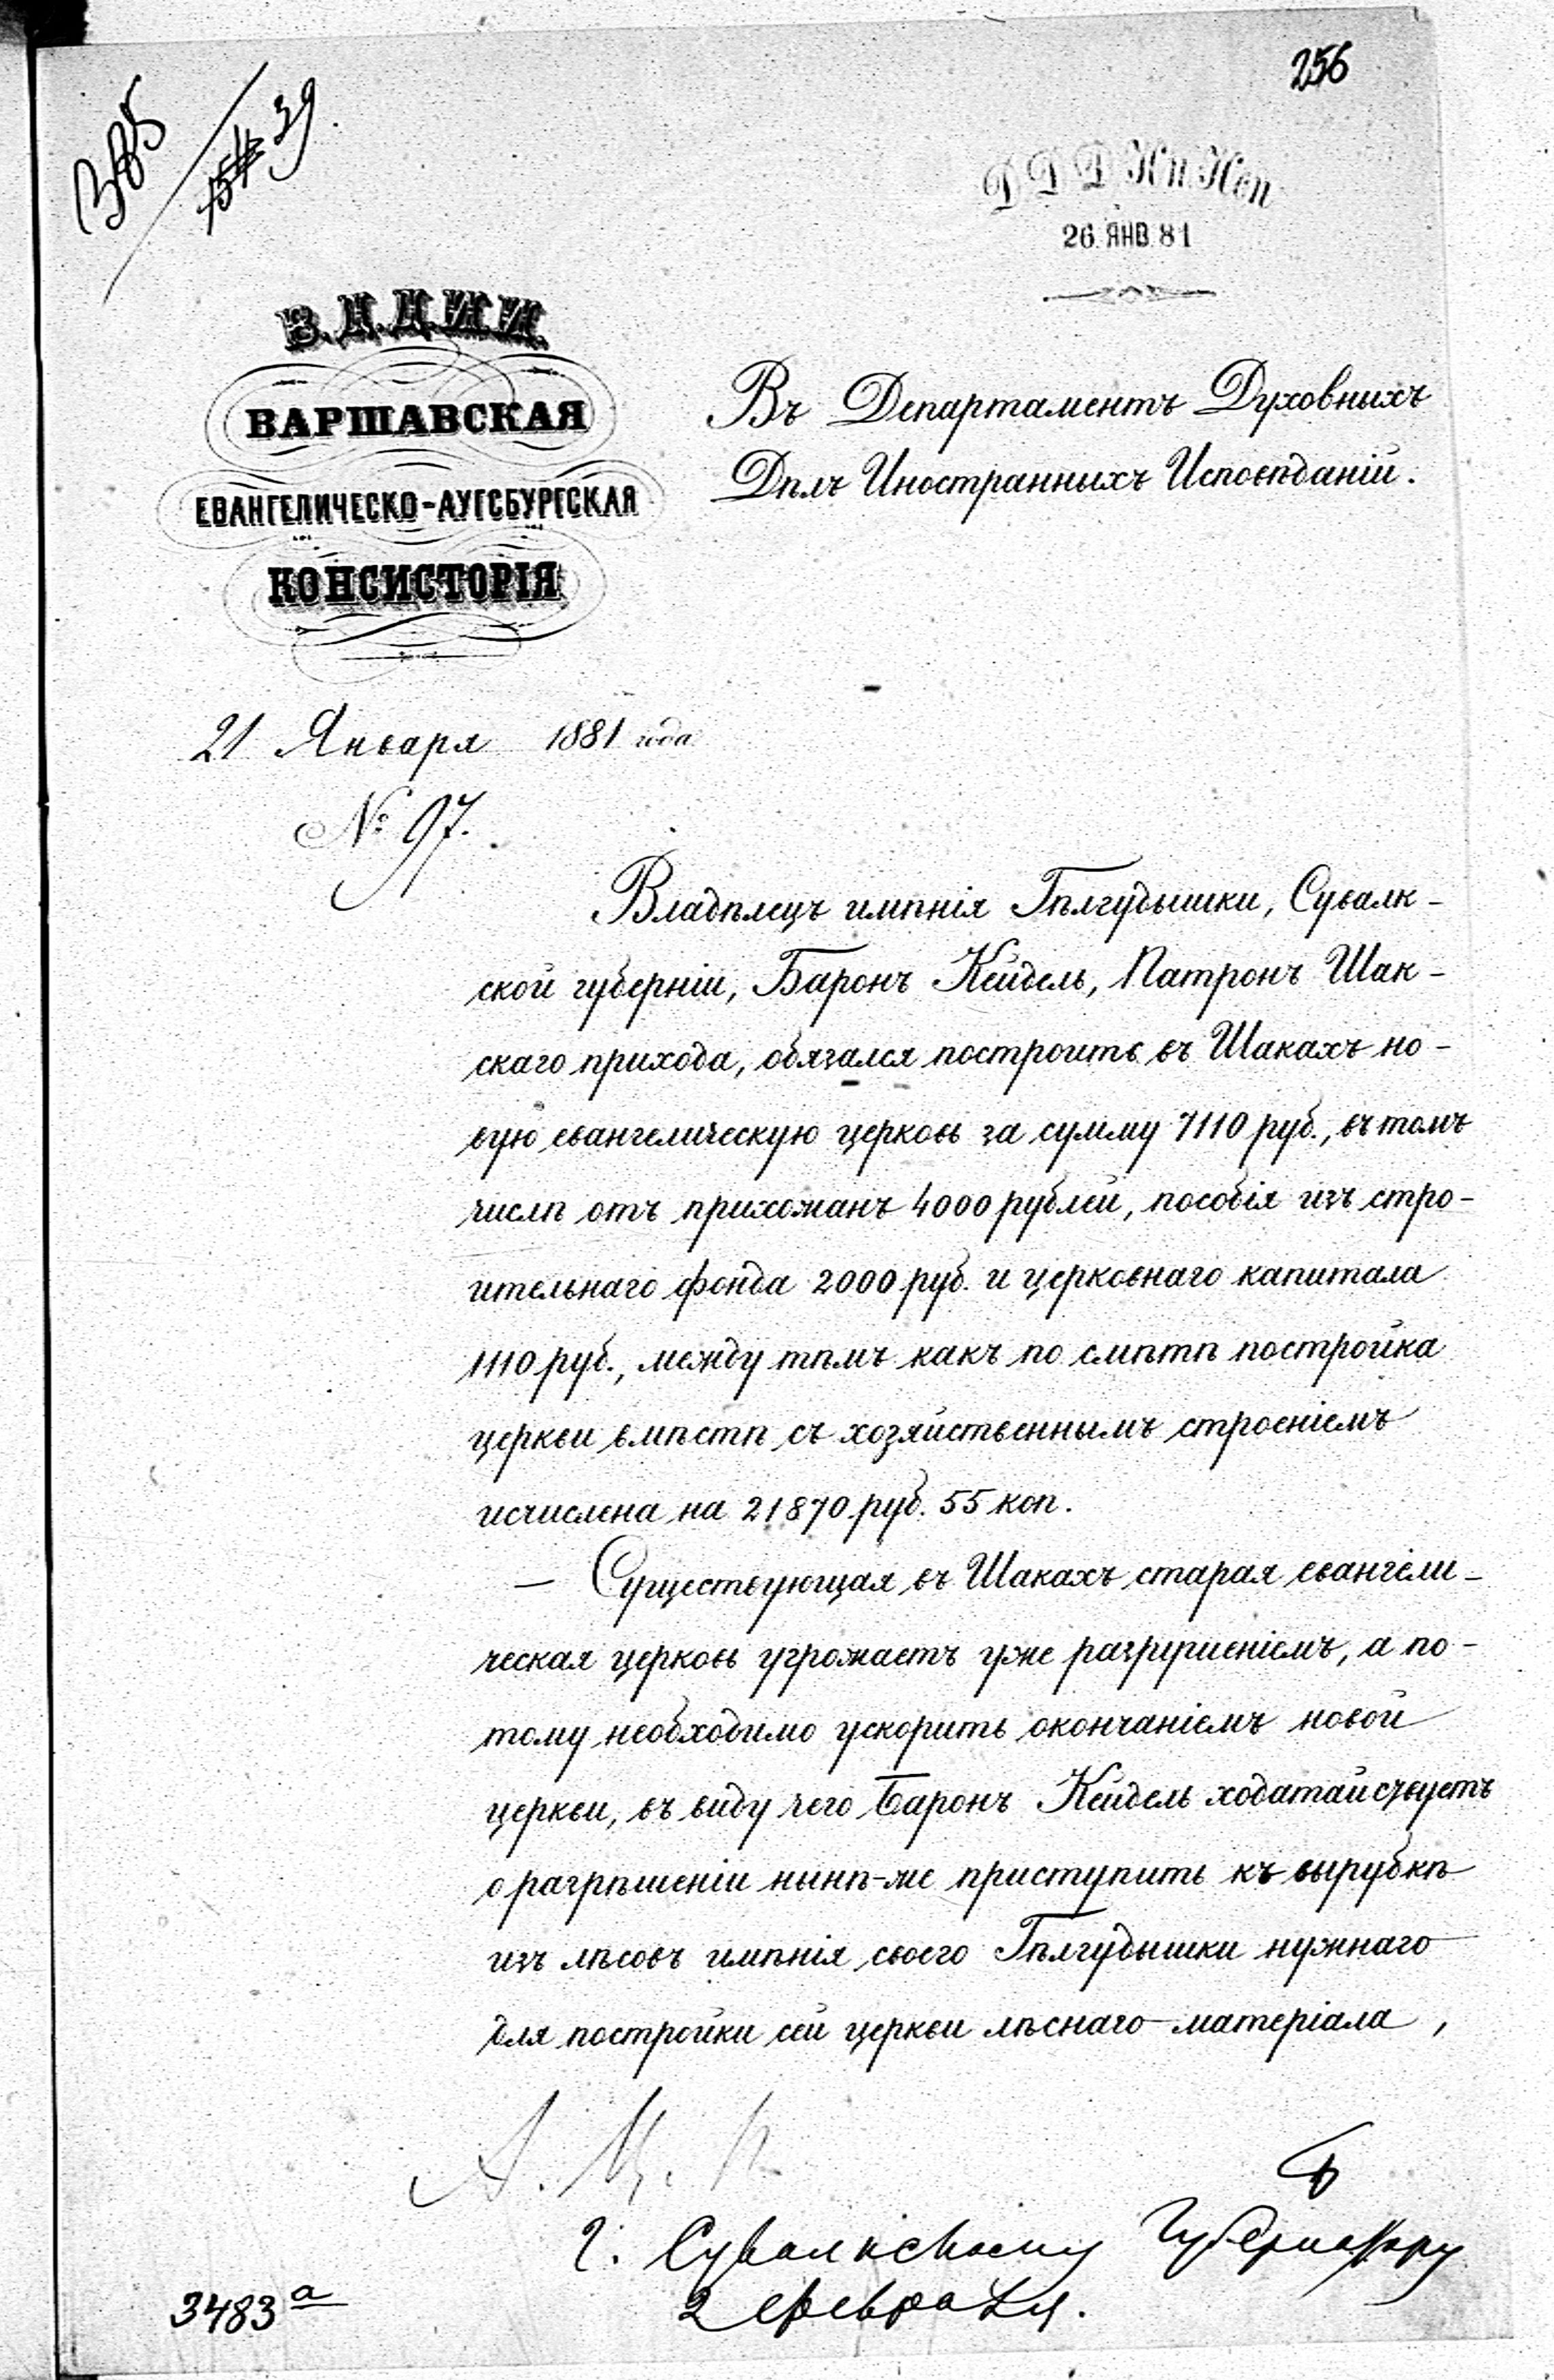 256
39
Д. Д. Д. Ин. Исп.
26 ЯНВ 81
В.Д.Д.И.И.
ВАРШАВСКАЯ
ЕВАНГЕЛИЧЕСКО-АУГСБУРГСКАЯ
КОНСИСТОРІЯ
Въ Департаментъ Духовныхъ
Дѣлъ Иностранныхъ Исповѣданій.
21 Января 1881 года
№ 97.
Владѣлецъ имѣнія Гѣлгудышки, Сувалк-
ской губерніи, Баронъ Кейдель, Патронъ Шак-
скаго прихода, обязался построить въ Шакахъ но-
вую евангелическую церковь за сумму 7110 руб., въ томъ
числѣ отъ прихожанъ 4000 рублей, пособія изъ стро-
ительнаго фонда 2000 руб. и церковнаго капитала
1110 руб., между тѣмъ какъ по смѣтѣ постройка
церкви вмѣстѣ съ хозяйственнымъ строеніемъ
исчислена на 21870 руб. 55 коп.
— Существующая въ Шакахъ старая евангели-
ческая церковь угрожаетъ уже разрушеніемъ, а по-
тому необходимо ускорить окончаніемъ новой
церкви, въ виду чего Баронъ Кейдель ходатайствуетъ
о разрѣшеніи нынѣ-же приступить къ вырубкѣ
изъ лѣсовъ имѣнія своего Гѣлгудышки нужнаго
для постройки сей церкви лѣснаго матеріала,
Г. Сувалкскому Губернатору
2 Февраля.
3483 а